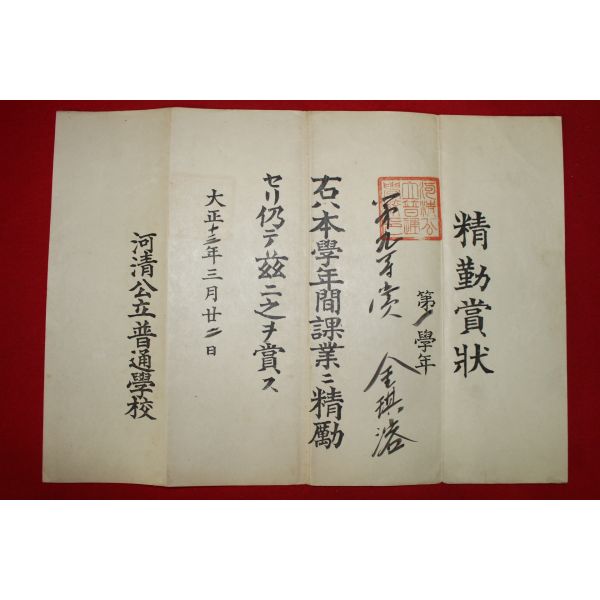 精勤賞狀
第一學年
第九等賞 金琪濬
右ハ本學年間課業ニ精勵
セリ仍テ茲ニ之ヲ賞ス
大正十三年三月廿二日
河清公立普通學校